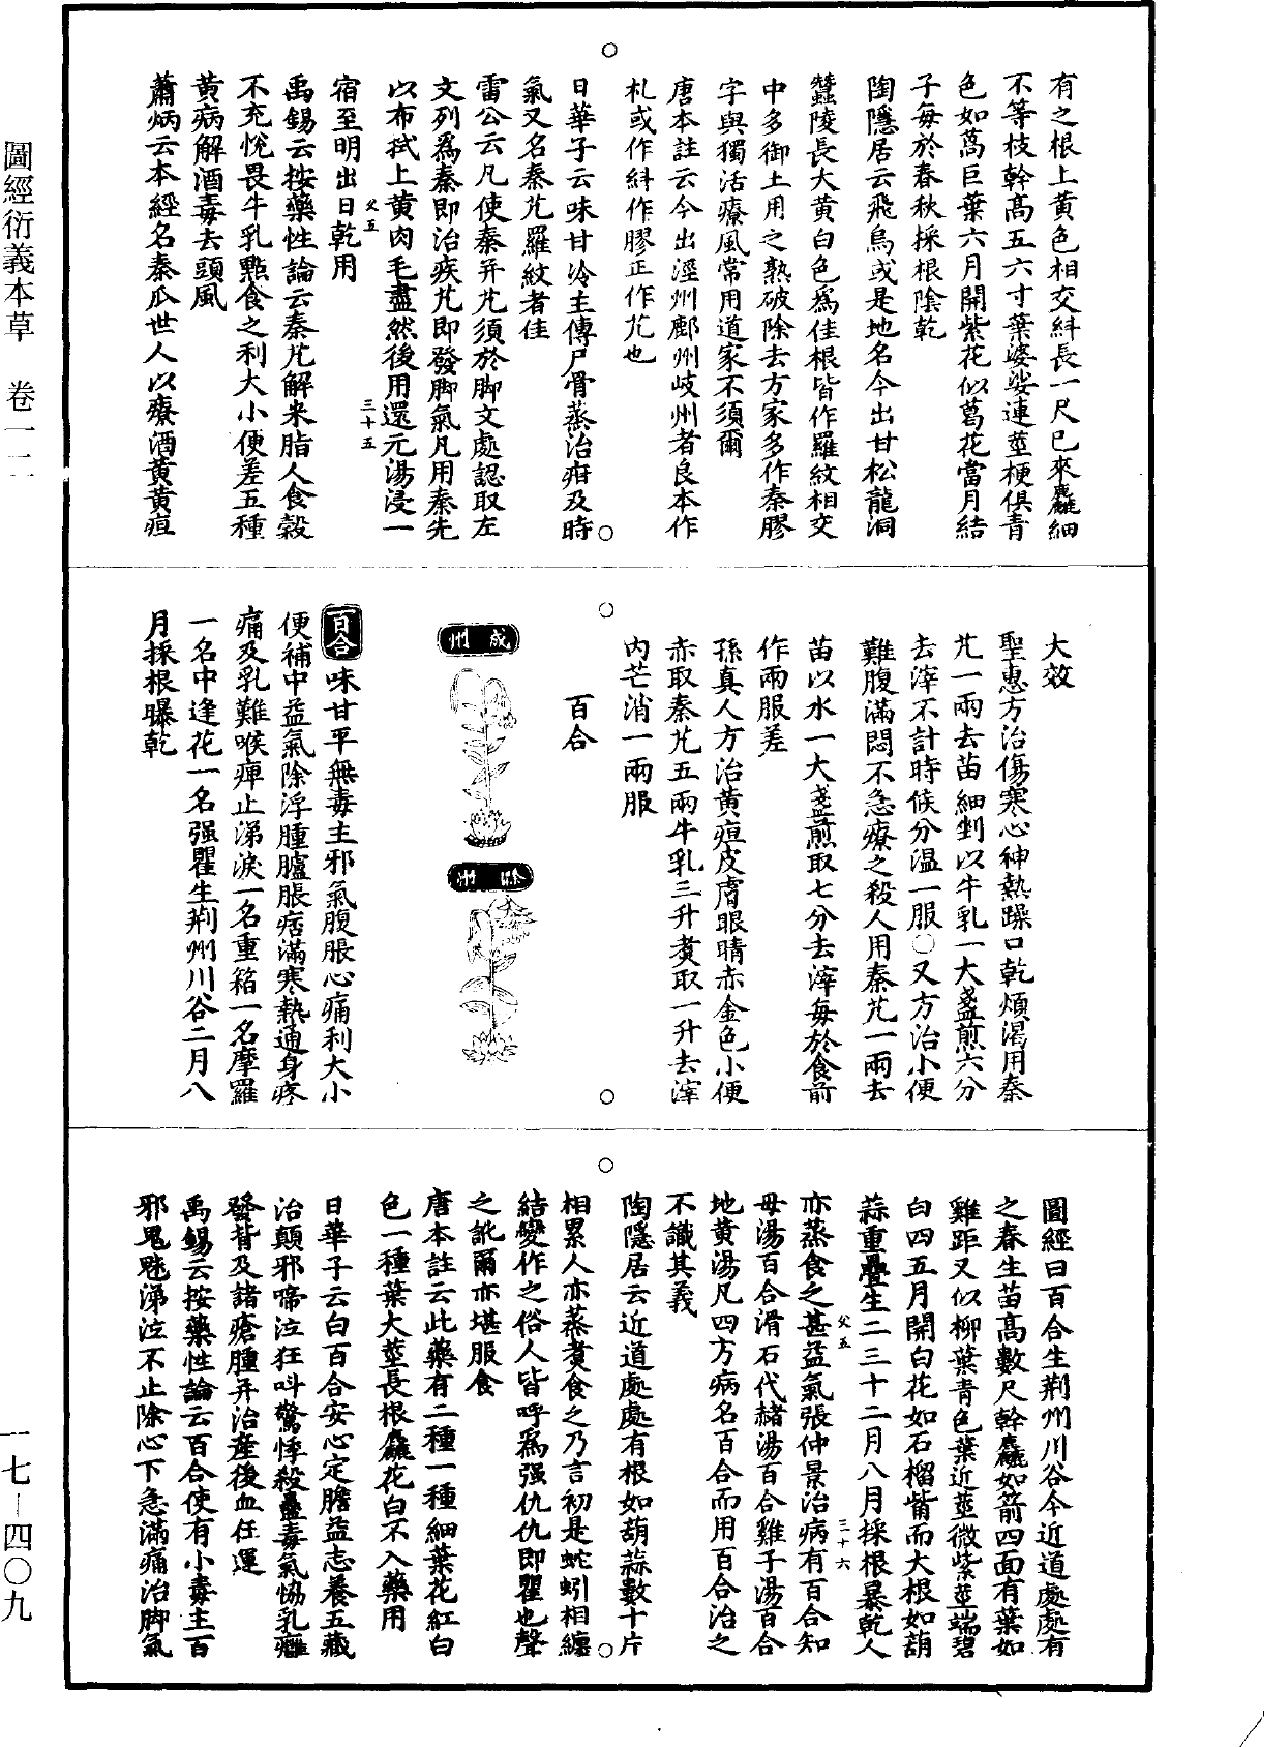 有之根上黄色相交糾長一尺已來麤細
不等枝幹高五六寸葉婆娑連莖梗俱青
色如萵巨葉六月開紫花似葛花當月結
子每於春秋採根陰乾
陶隱居云飛烏或是地名今出甘松龍洞
蠶陵長大黄白色爲佳根皆作羅紋相交
中多御土用之熟破除去方家多作秦膠
字與獨活療風常用道家不須爾
唐本註云今出涇州鄜州岐州者良本作
札或作糾作膠正作艽也
日華子云味甘冷主傳尸骨蒸治疳及時
氣又名秦艽羅紋者佳
雷公云凡使秦并艽須於脚文處認取左
文列爲秦即治疾艽即發脚氣凡用秦先
以布拭上黄肉毛盡然後用還元湯浸一
宿至明出日乾用
父五
三十五
禹錫云按藥性論云秦艽解米脂人食穀
不充悅畏牛乳點食之利大小便差五種
黄病解酒毒去頭風
蕭炳云本經名秦瓜世人以療酒黄黄疸
大效
聖惠方治傷寒心神熱躁口乾煩渴用秦
艽一兩去苗細剉以牛乳一大盞煎六分
去滓不計時候分温一服○又方治小便
難腹滿悶不急療之殺人用秦艽一兩去
苗以水一大盞煎取七分去滓每於食前
作兩服差
孫真人方治黄疸皮膚眼睛赤金色小便
赤取秦艽五兩牛乳三升煑取一升去滓
内芒消一兩服
百合
成州
滁州
百合味甘平無毒主邪氣腹脹心痛利大小
便補中益氣除浮腫臚脹痞滿寒熱通身疼
痛及乳難喉痺止涕淚一名重箱一名摩羅
一名中逢花一名强瞿生荆州川谷二月八
月採根曝乾
圖經曰百合生荆州川谷今近道處處有
之春生苗高數尺幹麤如箭四面有葉如
雞距又似柳葉青色葉近莖微紫莖端碧
白四五月開白花如石榴觜而大根如葫
蒜重疊生二三十二月八月採根暴乾人
亦蒸食之甚益氣張仲景治病有百合知
父五
三十六
母湯百合滑石代赭湯百合雞子湯百合
地黄湯凡四方病名百合而用百合治之
不識其義
陶隱居云近道處處有根如葫蒜數十片
相累人亦蒸煑食之乃言初是蛇蚓相纏
結變作之俗人皆呼爲强仇仇即瞿也聲
之訛爾亦堪服食
唐本註云此藥有二種一種細葉花紅白
色一種葉大莖長根麤花白不入藥用
日華子云白百合安心定膽益志養五藏
治顛邪啼泣狂叫驚悸殺蠱毒氣恊乳癰
發背及諸瘡腫并治産後血狂運
禹錫云按藥性論云百合使有小毒主百
邪鬼魅涕泣不止除心下急滿痛治脚氣
圖經衍義本草 卷一二
一七—四〇九